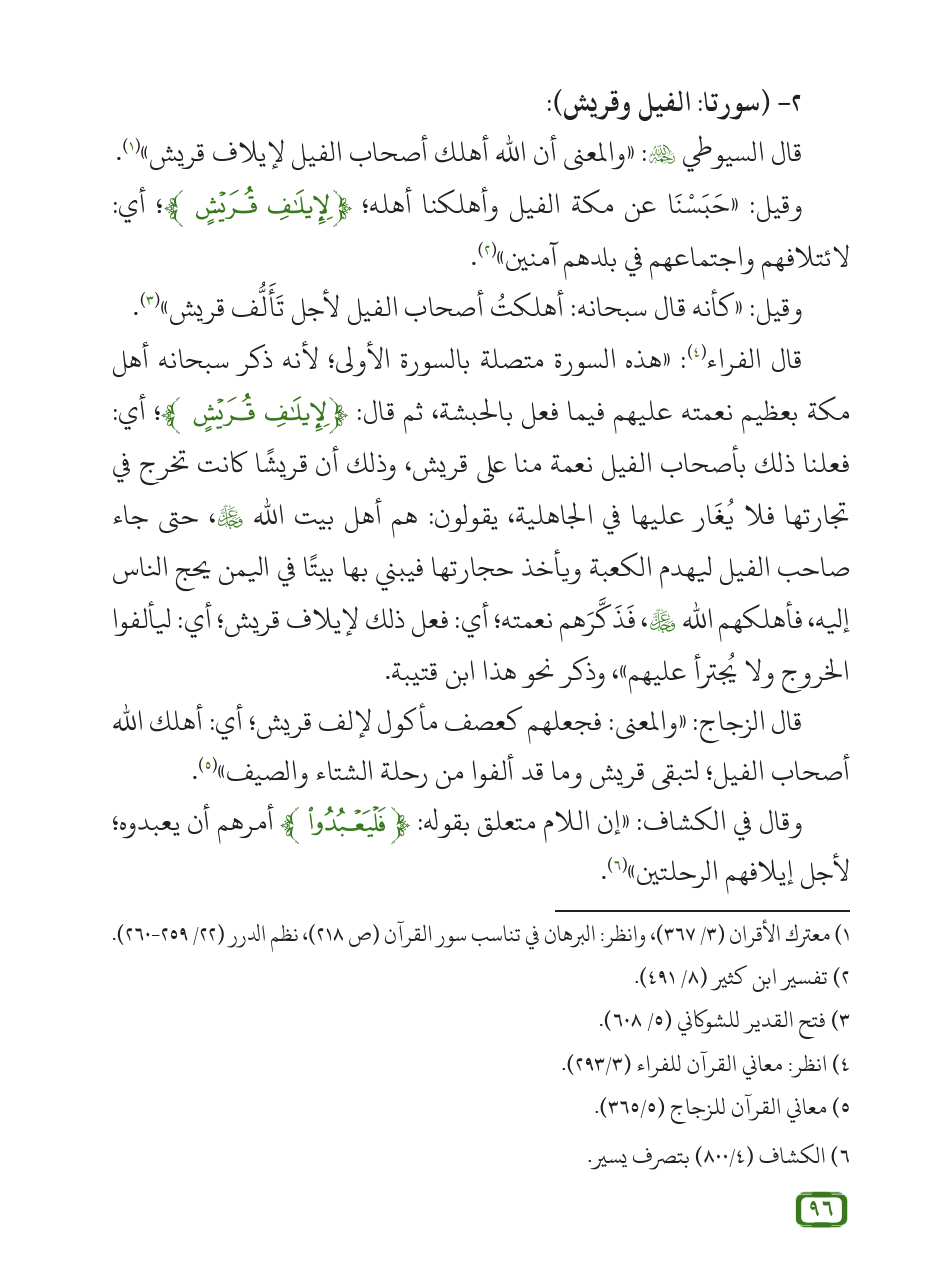 ٢- (سورتا: الفيل وقريش):
قال السيوطي رحمه الله: «والمعنى أن الله أهلك أصحاب الفيل لإيلاف قريش»(١).
وقيل: «حَبَسْنَا عن مكة الفيل وأهلكنا أهله؛ ﴿لِإِيلَٰفِ قُرَيْشٍ﴾؛ أي:
لائتلافهم واجتماعهم في بلدهم آمنين»(٢).
وقيل: «كأنه قال سبحانه: أهلكتُ أصحاب الفيل لأجل تَأَلُّف قريش»(٣).
قال الفراء(٤): «هذه السورة متصلة بالسورة الأولى؛ لأنه ذكر سبحانه أهل
مكة بعظيم نعمته عليهم فيما فعل بالحبشة، ثم قال: ﴿لِإِيلَٰفِ قُرَيْشٍ﴾؛ أي:
فعلنا ذلك بأصحاب الفيل نعمة منا على قريش، وذلك أن قريشًا كانت تخرج في
تجارتها فلا يُغَار عليها في الجاهلية، يقولون: هم أهل بيت الله عز وجل، حتى جاء
صاحب الفيل ليهدم الكعبة ويأخذ حجارتها فيبني بها بيتًا في اليمن يحج الناس
إليه، فأهلكهم الله عز وجل، فَذَكَّرَهم نعمته؛ أي: فعل ذلك لإيلاف قريش؛ أي: ليألفوا
الخروج ولا يُجترأ عليهم»، وذكر نحو هذا ابن قتيبة.
قال الزجاج: «والمعنى: فجعلهم كعصف مأكول لإلف قريش؛ أي: أهلك الله
أصحاب الفيل؛ لتبقى قريش وما قد ألفوا من رحلة الشتاء والصيف»(٥).
وقال في الكشاف: «إن اللام متعلق بقوله: ﴿فَلْيَعْبُدُوا۟﴾ أمرهم أن يعبدوه؛
لأجل إيلافهم الرحلتين»(٦).
١) معترك الأقران (٣/ ٣٦٧)، وانظر: البرهان في تناسب سور القرآن (ص ٢١٨)، نظم الدرر (٢٢/ ٢٥٩-٢٦٠).
٢) تفسير ابن كثير (٨/ ٤٩١).
٣) فتح القدير للشوكاني (٥/ ٦٠٨).
٤) انظر: معاني القرآن للفراء (٢٩٣/٣).
٥) معاني القرآن للزجاج (٣٦٥/٥).
٦) الكشاف (٨٠٠/٤) بتصرف يسير.
٩٦